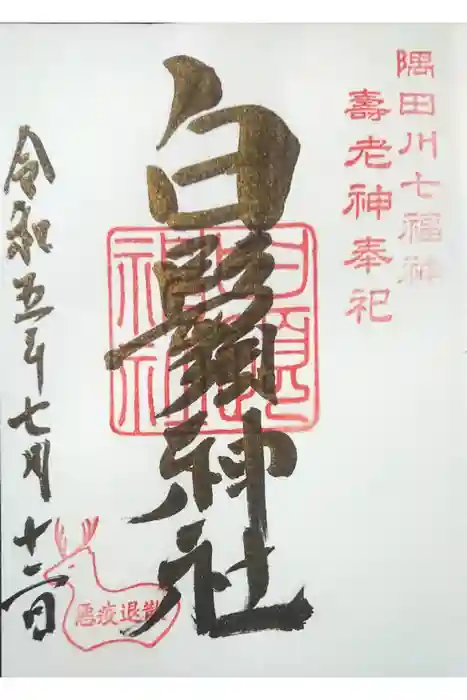 隅田川七福神
壽老神奉祀
白鬚神社
白鬚神社
令和五年七月十二日
悪疫退散